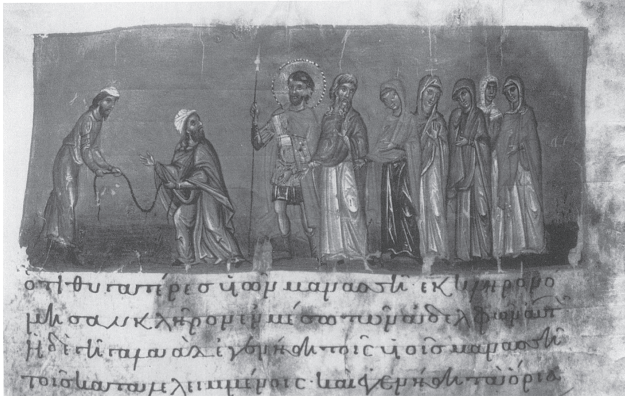 ὅτι θυγατέρες υἱῶν μανασσῆ ἐκληρονό
μησαν κλῆρον ἐν μέσω τῶν ἀδελφῶν αὐτ
ἡ δὲ γῆ γαλαὰδ ἐγενήθη τοῖς υἱοῖς μανασσῆ
τοῖς καταλελειμμένοις· καὶ ἐγενήθη τὰ ὅρια